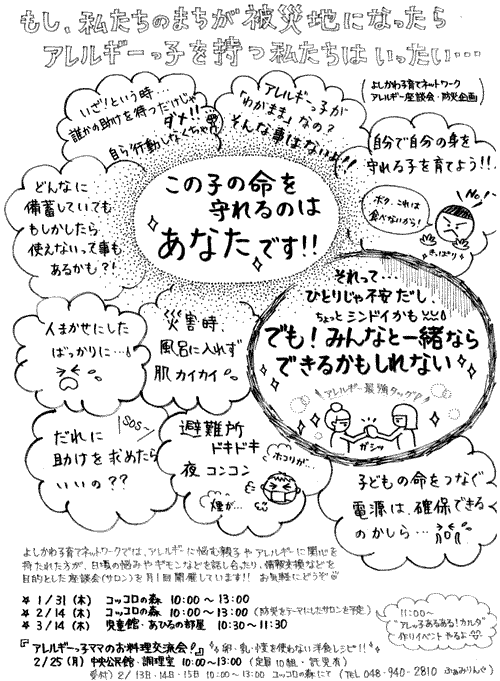 もし、私たちのまちが被災地になったら
アレルギーっ子を持つ私たちはいったい…
よしかわ子育てネットワーク
アレルギー座談会・防災企画
いざ!という時…
誰かの助けを待つだけじゃ
ダメ!!
自ら行動しなくちゃ
アレルギーっ子が
「わがまま」なの?
そんな事はないよ!!
自分で自分の身を
守れる子を育てよう!!
ボク、これは
食べないから!
No!
きっぱり
どんなに
備蓄していても
もしかしたら
使えないって事も
あるかも?!
この子の命を
守れるのは
あなたです!!
それって…
ひとりじゃ不安だし、
ちょっとシンドイかも
でも!みんなと一緒なら
できるかもしれない
アレルギー最強タッグ
ガシッ
人まかせにした
ばっかりに…
災害時、
風呂に入れず
肌カイカイ
だれに
助けを求めたら
いいの??
SOS~
避難所
ドキドキ
夜コンコン
ホコリが…
煙が…
子どもの命をつなぐ
電源は、確保できる
のかしら…
よしかわ子育てネットワークでは、アレルギーに悩む親子やアレルギーに関心を
持たれた方が、日頃の悩みやギモンなどを話し合ったり、情報支援などを
目的とした座談会(サロン)を月1回開催しています!! お気軽にどうぞ
★ 1/31(木) コッコロの森 10:00~13:00
★ 2/14(木) コッコロの森 10:00~13:00 (防災をテーマにしたサロンを予定)
★ 3/14(木) 児童館・あひるの部屋 10:30~11:30
11:00~
"アレっ子あるある!カルタ"
作りイベントやるよ
『アレルギーっ子ママのお料理交流会』卵・乳・小麦を使わない洋食レシピ!!
2/25(月) 中央公民館・調理室 10:00~13:00 (定員10組・託児有)
受付) 2/13日・14日・15日 10:00~13:00 コッコロの森にて (Tel 048-940-2810 ふぁみりんぐ)